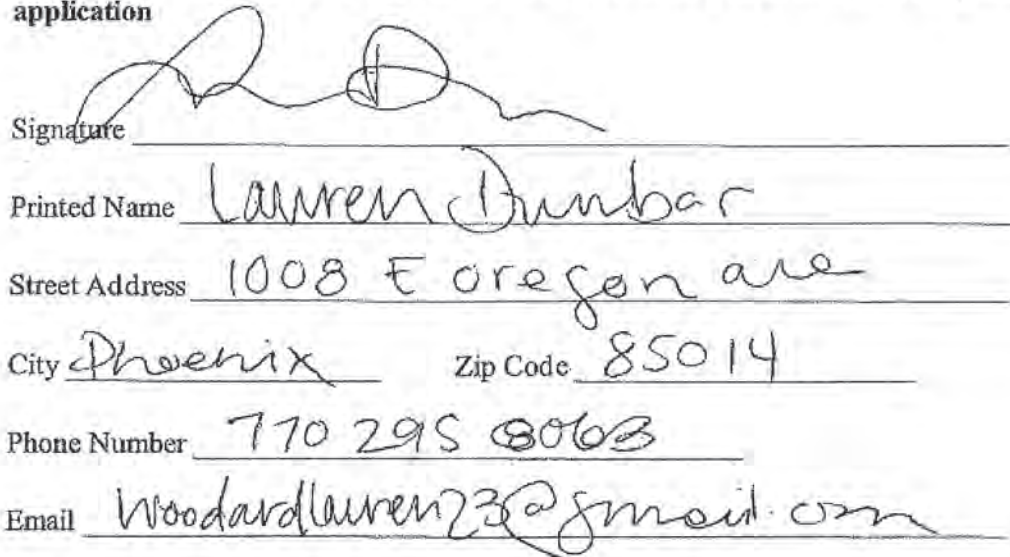 application
Signature
Printed Name Lauren Dunbar
Street Address 1008 E oregon ave
City Phoenix Zip Code 85014
Phone Number 770 295 8063
Email woodardlauren23@gmail.com